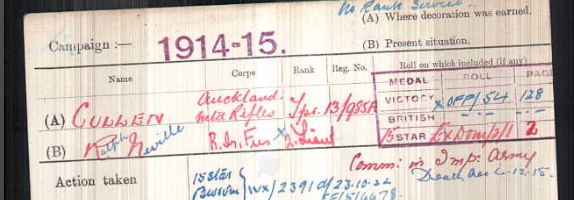 (A) Where decoration was earned.
Campaign :— 1914-15. (B) Present situation.
Name Corps Rank Reg. No. Roll on which included (if any)
MEDAL ROLL PAGE
(A) CULLEN Auckland Mtd Rifles Tpr. 13/985A VICTORY OFF/54 128
BRITISH - do - - do -
(B) Ralph Neville R. Ir. Fus 2. Lieut 15 STAR Ex Dom/1 2
Comm: in Imp: Army
Action taken 15 Star Death 4.12.15.
IVX/2391 d/ 23-10-22